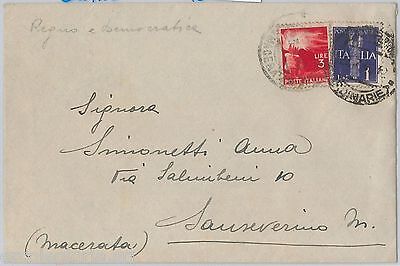 Regno e Democratica
LIRE
3
POSTE ITALIANE
ITALIA
L. 1
Signora
Simonetti Anna
Via Salimbeni 10
Sanseverino M.
(Macerata)